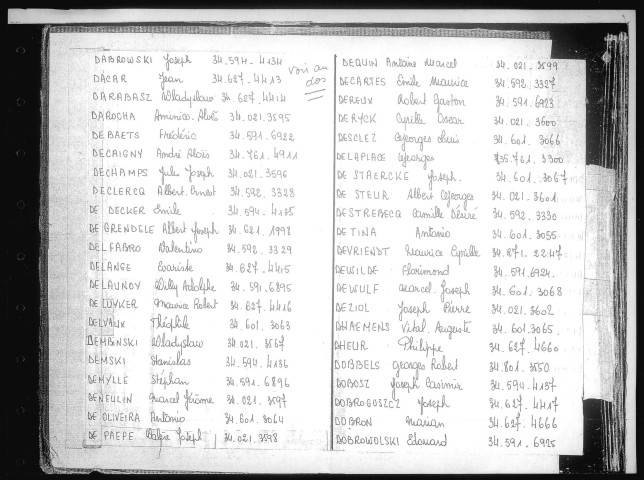 DABROWSKI Joseph 34.594-4134
DACAR Jean 34.627-4413
voir au dos
DARABASZ Wladyslaw 34.627-4414
DAROCHA Aminico. Alvès 34.021.3595
DE BAETS Frédéric 34.591.6922
DECAIGNY André Aloïs 34.761.4911
DECHAMPS Jules Joseph 34.021.3596
DECLERCQ Albert. Ernest 34.592.3328
DE DECKER Emile 34.594-4135
DE GRENDELE Albert Joseph 34.621.1998
DELFABRO Valentino 34.592.3329
DELANGE Evariste 34.627-4415
DELAUNOY Willy Adolphe 34.591.6895
DE LUYKER Maurice Robert 34.627-4416
DELVAUX Théophile 34.601.3063
DEMBINSKI Wladyslaw 34.021.3567
DEMSKI Stanislas 34.594-4136
DEMYLLE Stéphan 34.591.6896
DENEULIN Marcel Jérôme 34.021.3597
DE OLIVEIRA Antonio 34.601.3064
DE PAEPE Joseph 34.021.3598
DEQUIN Antoine Marcel 34.021.3599
DECARTES Emile Maurice 34.592.3327
DEREUX Robert Gaston 34.591.6923
DERYCK Cyrille Oscar 34.021.3600
DESCLEZ Georges Louis 34.601.3066
DELAPLACE Georges 35.761.3300
DE STAERCKE Joseph 34.601.3067
DE STEUR Albert Georges 34.021.3601
DESTREBECQ Camille Désiré 34.592.3330
DE TINA Antonio 34.601.3055
DEVRIENDT Maurice Cyrille 34.871.2247
DEWILDE Florimond 34.591.6924
DEWULF Marcel Joseph 34.601.3068
DEZIOL Joseph Pierre 34.021.3602
DHAEMENS Vital. Auguste 34.601.3065
DHEUR Philippe 34.627.4660
DOBBELS Georges Robert 34.801.3550
DOBOSZ Joseph Casimir 34.594-4137
DOBROGOSZCZ Joseph 34.627-4417
DOBRON Marian 34.627-4666
DOBROWOLSKI Edouard 34.591.6925